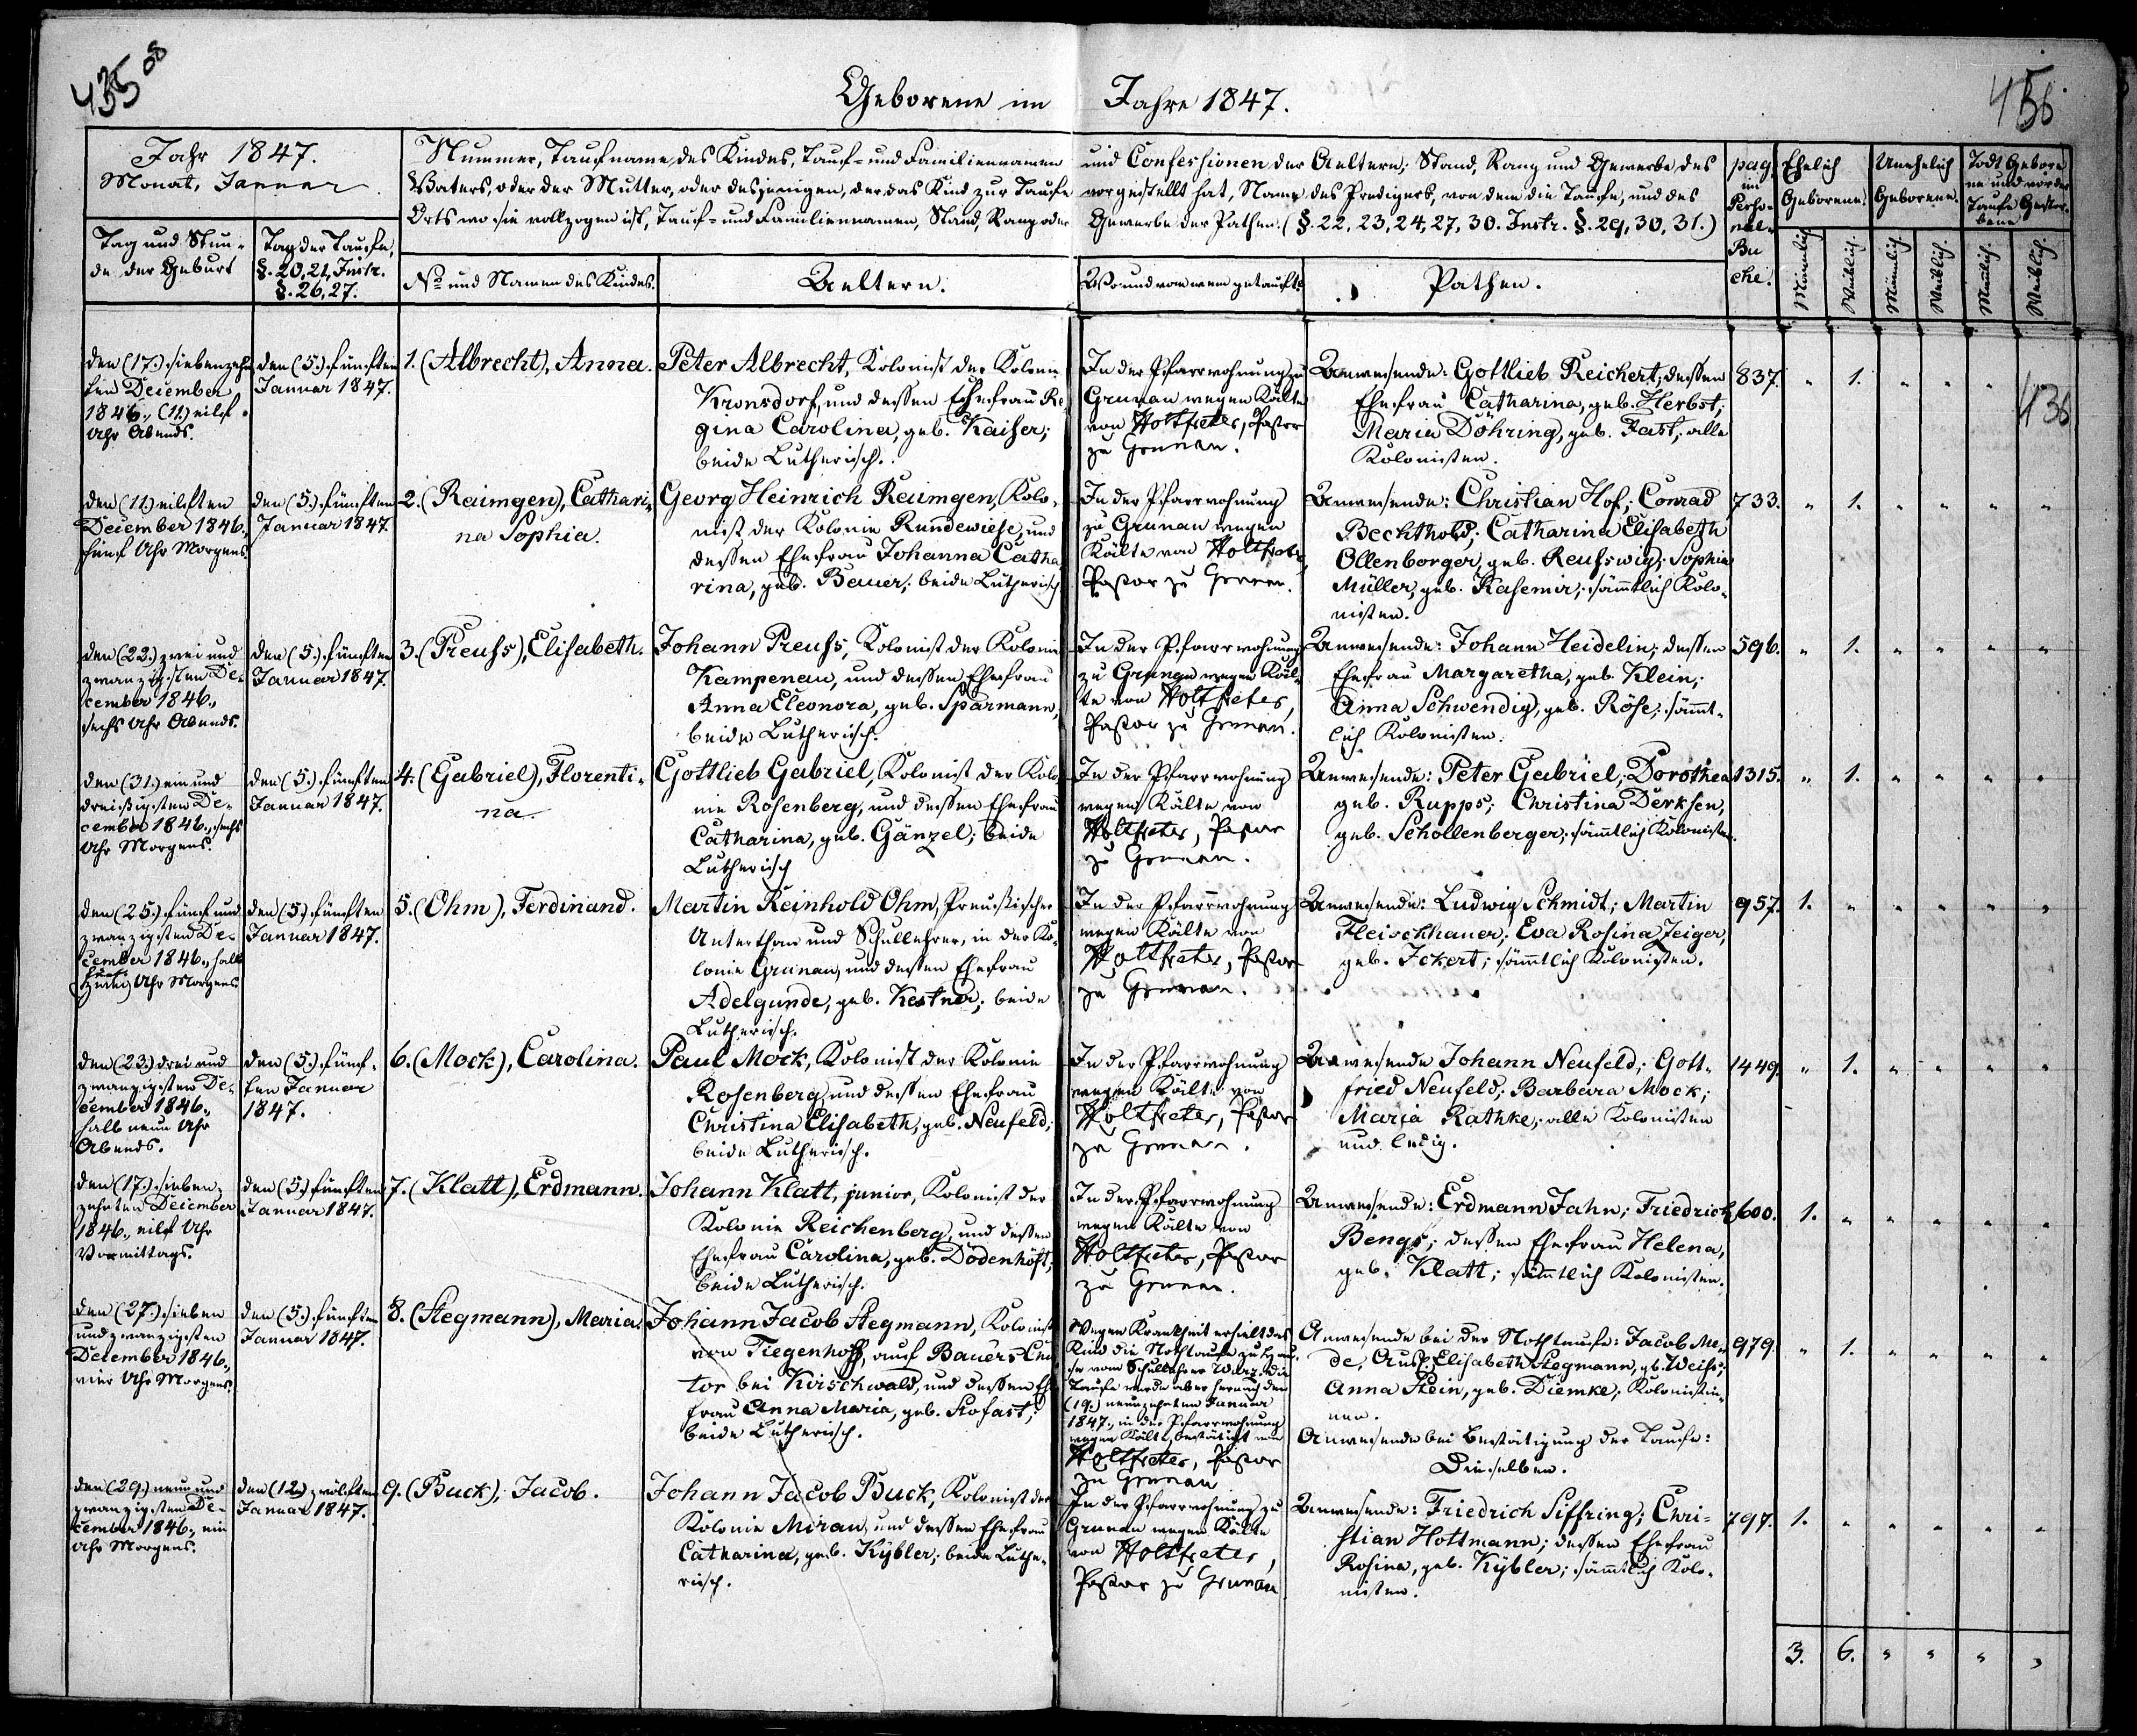 435
436
Geborene im Jahre 1847.
Jahr 1847.
Monat, Januar
Nummer, Taufname des Kindes, Tauf- und Familiennamen und Confessionen der Aeltern; Stand, Rang und Gewerbe des
Vaters, oder der Mutter, oder desjenigen, der das Kind zur Taufe vorgestellt hat, Name des Predigers, von dem die Taufe, und des
Orts wo sie vollzogen ist, Tauf- und Familiennamen, Stand, Rang oder Gewerbe der Pathen. (§. 22, 23, 24, 27, 30. Instr. §. 29, 30, 31.)
pag.
im
Perso-
nal-
Bu
che.
Ehelich
Geborene.
Unehelich
Geborene.
Todt Gebore
ne und vor der
Taufe Gestor-
bene
Tag und Stun-
de der Geburt
Tag der Taufe,
§. 20, 21, Instr.
§. 26, 27.
No und Namen des Kindes.
Aeltern.
Wo und von wem getauft?
Pathen.
Männlich.
Weiblich.
Männlich.
Weiblich.
Männlich.
Weiblich.
den (17.) siebenzehn
ten December
1846., (11.) eilf
Uhr Abends.
den (5.) fünften
Januar 1847.
1. (Albrecht), Anna.
Peter Albrecht, Kolonist der Kolonie
Kronsdorf, und dessen Ehefrau Re
gina Carolina, geb. Kaiser;
beide Lutherisch.
In der Pfarrwohnung zu
Grunau wegen Kälte
von Holtfreter, Pastor
zu Grunau.
Anwesende: Gottlieb Reichert; dessen
Ehefrau Catharina, geb. Herbst;
Maria Döhring, geb. Fast; alle
Kolonisten.
837. " 1. " " "
436
den (11.) eilften
December 1846.,
fünf Uhr Morgens.
den (5.) fünften
Januar 1847.
2. (Reimgen), Cathari-
na Sophia.
Georg Heinrich Reimgen, Kolo-
nist der Kolonie Rundewiese, und
dessen Ehefrau Johanna Catha
rina, geb. Bauer; beide Lutherisch.
In der Pfarrwohnung
zu Grunau wegen
Kälte von Holtfreter,
Pastor zu Grunau.
Anwesende: Christian Hof; Conrad
Bechthold; Catharina Elisabeth
Ollenborger, geb. Reufswig; Sophia
Müller, geb. Kasemir; sämmtlich Kolo-
nisten.
733. " 1. " " " "
den (22.) zwei und
zwanzigsten De-
cember 1846.,
sechs Uhr Abends.
den (5.) fünften
Januar 1847.
3. (Preufs), Elisabeth.
Johann Preufs, Kolonist der Kolonie
Kampenau, und dessen Ehefrau
Anna Eleonora, geb. Sparmann,
beide Lutherisch.
In der Pfarrwohnung
zu Grunau wegen Käl-
te von Holtfreter,
Pastor zu Grunau.
Anwesende: Johann Heidelin; dessen
Ehefrau Margaretha, geb. Klein;
Anna Schwendig, geb. Röse; sämmt-
lich Kolonisten.
596. " 1. " " " "
den (31.) ein und
dreißigsten De-
cember 1846., sechs
Uhr Morgens.
den (5.) fünften
Januar 1847.
4. (Gabriel), Florenti-
na.
Gottlieb Gabriel, Kolonist der Kolo
nie Rosenberg, und dessen Ehefrau
Catharina, geb. Gänzel; beide
Lutherisch
In der Pfarrwohnung
wegen Kälte von
Holtfreter, Pastor
zu Grunau.
Anwesende: Peter Gabriel; Dorothea
geb. Rupps; Christina Derksen,
geb. Schollenberger; sämmtlich Kolonisten.
1315. " 1. " " " "
den (25.) fünf und
zwanzigsten De-
cember 1846., halb
(zwei) Uhr Morgens
den (5.) fünften
Januar 1847.
5. (Ohm), Ferdinand.
Martin Reinhold Ohm, Preußischer
Unterthan und Schullehrer, in der Ko-
lonie Grunau, und dessen Ehefrau
Adelgunde, geb. Kestner; beide
Lutherisch.
In der Pfarrwohnung
wegen Kälte von
Holtfreter, Pastor
zu Grunau.
Anwesende: Ludwig Schmidt; Martin
Fleischhauer; Eva Rosina Zeiger,
geb. Ickert; sämmtlich Kolonisten.
957. 1. " " " " "
den (23.) drei und
zwanzigsten De-
cember 1846.,
halb neun Uhr
Abends.
den (5.) fünf-
ten Januar
1847.
6. (Mock), Carolina.
Paul Mock, Kolonist der Kolonie
Rosenberg und dessen Ehefrau
Christina Elisabeth, geb. Neufeld;
beide Lutherisch.
In der Pfarrwohnung
wegen Kälte von
Holtfreter, Pastor
zu Grunau.
Anwesende Johann Neufeld; Gott-
fried Neufeld; Barbara Mock;
Maria Rathke; alle Kolonisten
und ledig.
1449. " 1. " " " "
den (17.) sieben-
zehnten December
1846., eilf Uhr
Vormittags.
den (5.) fünften
Januar 1847.
7. (Klatt), Erdmann.
Johann Klatt, junior, Kolonist der
Kolonie Reichenberg, und dessen
Ehefrau Carolina, geb. Dodenhöft;
beide Lutherisch.
In der Pfarrwohnung
wegen Kälte von
Holtfreter, Pastor
zu Grunau.
Anwesende: Erdmann Jahn; Friedrich
Bengs; dessen Ehefrau Helena,
geb. Klatt; sämmtlich Kolonisten.
600. 1. " " " " "
den (27.) sieben
und zwanzigsten
December 1846.,
vier Uhr Morgens.
den (5.) fünften
Januar 1847.
8. (Stegmann), Maria.
Johann Jacob Stegmann, Kolonist
von Tiegenhoff, auf Bauers-Chu
tor bei Kirschwald, und dessen Eh
frau Anna Maria, geb. Stofast;
beide Lutherisch.
Wegen Krankheit erhielt das
Kind die Nothtaufe zu Hau-
se vom Schullehrer Warz. Die
Taufe wurde aber hernach den
(19.) neunzehnten Januar
1847., in der Pfarrwohnung
wegen Kälte, bestätigt von
Holtfreter, Pastor
zu Grunau
Anwesende bei der Nothtaufe: Jacob Me-
de; Elisabeth Stegmann, gb. Weiss;
Anna Stein, geb. Diemke; Kolonistin-
nen.
Anwesende bei Bestätigung der Taufe:
Dieselben.
979. " 1. " " " "
den (29.) neun und
zwanzigsten De-
cember 1846., ein
Uhr Morgens.
den (12.) zwölften
Januar 1847.
9. (Buck), Jacob.
Johann Jacob Buck, Kolonist der
Kolonie Mirau, und dessen Ehefrau
Catharina, geb. Kÿbler; beide Luthe-
risch.
In der Pfarrwohnung zu
Grunau wegen Kälte
von Holtfreter,
Pastor zu Grunau
Anwesende: Friedrich Siffring; Chri-
stian Hottmann; dessen Ehefrau
Rosina, geb. Kÿbler; sämmtlich Kolo-
nisten.
797. 1. " " " " "
3. 6. " " " "